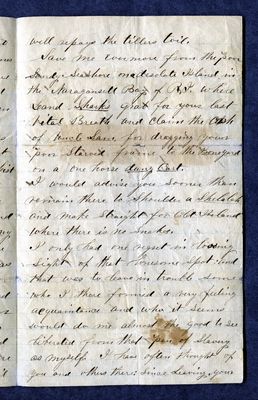 well repays the tillers toil.
Save me evermore from the poor
Sandy Seashore on a desolate Island in
the Naragansett Bay of R.I. where
Land Sharks grab for your last
Vital Breath and claim the Cash
of Uncle Sam, for dragging your
poor Starved frame to the Boneyard
on a one horse Dung Cart.
I would advise you sooner than
remain there to Shoulder a Shelalah
and make straight for Old Ireland
Where there is no Snakes.
I only had one regret in loosing
sight of that lonesome Spot and
that was to leave in trouble some
who I there formed a very feeling
acquaintance and who it seems
would do me almost the good to see
liberated from that of Slavery
as myself. I have often thought of
you and others there: since Leaving, your